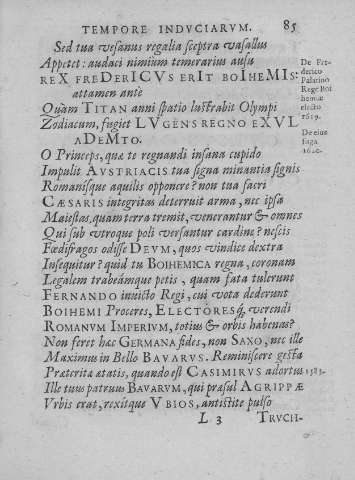 TEMPORE INDVCIARVM. 85
Sed tua vesanus regalia sceptra vasallus
Appetet: audaci nimium temerarius ausu
REX FREDERICVS ERIT BOIHEMIS:
attamen ante
Quàm TITAN anni spatio lustrabit Olympi
Zodiacum, fugiet LVGENS REGNO EXVL
ADEMTO.
De Fri-
derico
Palatino
Rege Boi
hemiæ
electo
1619.
De eius
fuga
1620.
O Princeps, quæ te regnandi insana cupido
Impulit AVSTRIACIS tua signa minantia signis
Romanisque aquilis opponere? non tua sacri
CÆSARIS integritas deterruit arma, nec ipsa
Maiestas, quam terra tremit, venerantur & omnes
Qui sub vtroque poli versantur cardine? nescis
Fœdifragos odisse DEVM, quos vindice dextra
Insequitur? quid tu BOIHEMICA regna, coronam
Legalem trabeámque petis, quam fata tulerunt
FERNANDO invicto Regi, cui vota dederunt
BOIHEMI Proceres, ELECTORESq́, verendi
ROMANVM IMPERIVM, totius & orbis habenas?
Non feret hæc GERMANA fides, non SAXO, nec ille
Maximus in Bello BAVARVS. Reminiscere gesta
Præteritæ ætatis, quando est CASIMIRVS adortus
1583.
Ille tuus patruus BAVARVM, qui præsul AGRIPPÆ
Vrbis erat, rexitque VBIOS, antistite pulso
L 3 TRVCH-